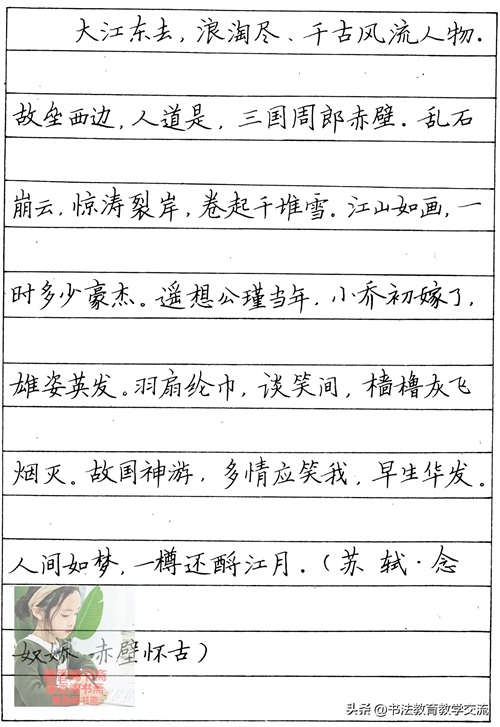 大江东去，浪淘尽、千古风流人物.
故垒西边，人道是，三国周郎赤壁．乱石
崩云，惊涛裂岸，卷起千堆雪。江山如画，一
时多少豪杰。遥想公瑾当年，小乔初嫁了，
雄姿英发。羽扇纶巾，谈笑间，樯橹灰飞
烟灭。故国神游，多情应笑我，早生华发。
人间如梦，一樽还酹江月．（苏轼·念
奴娇 赤壁怀古）
头条 @书法教育教学交流